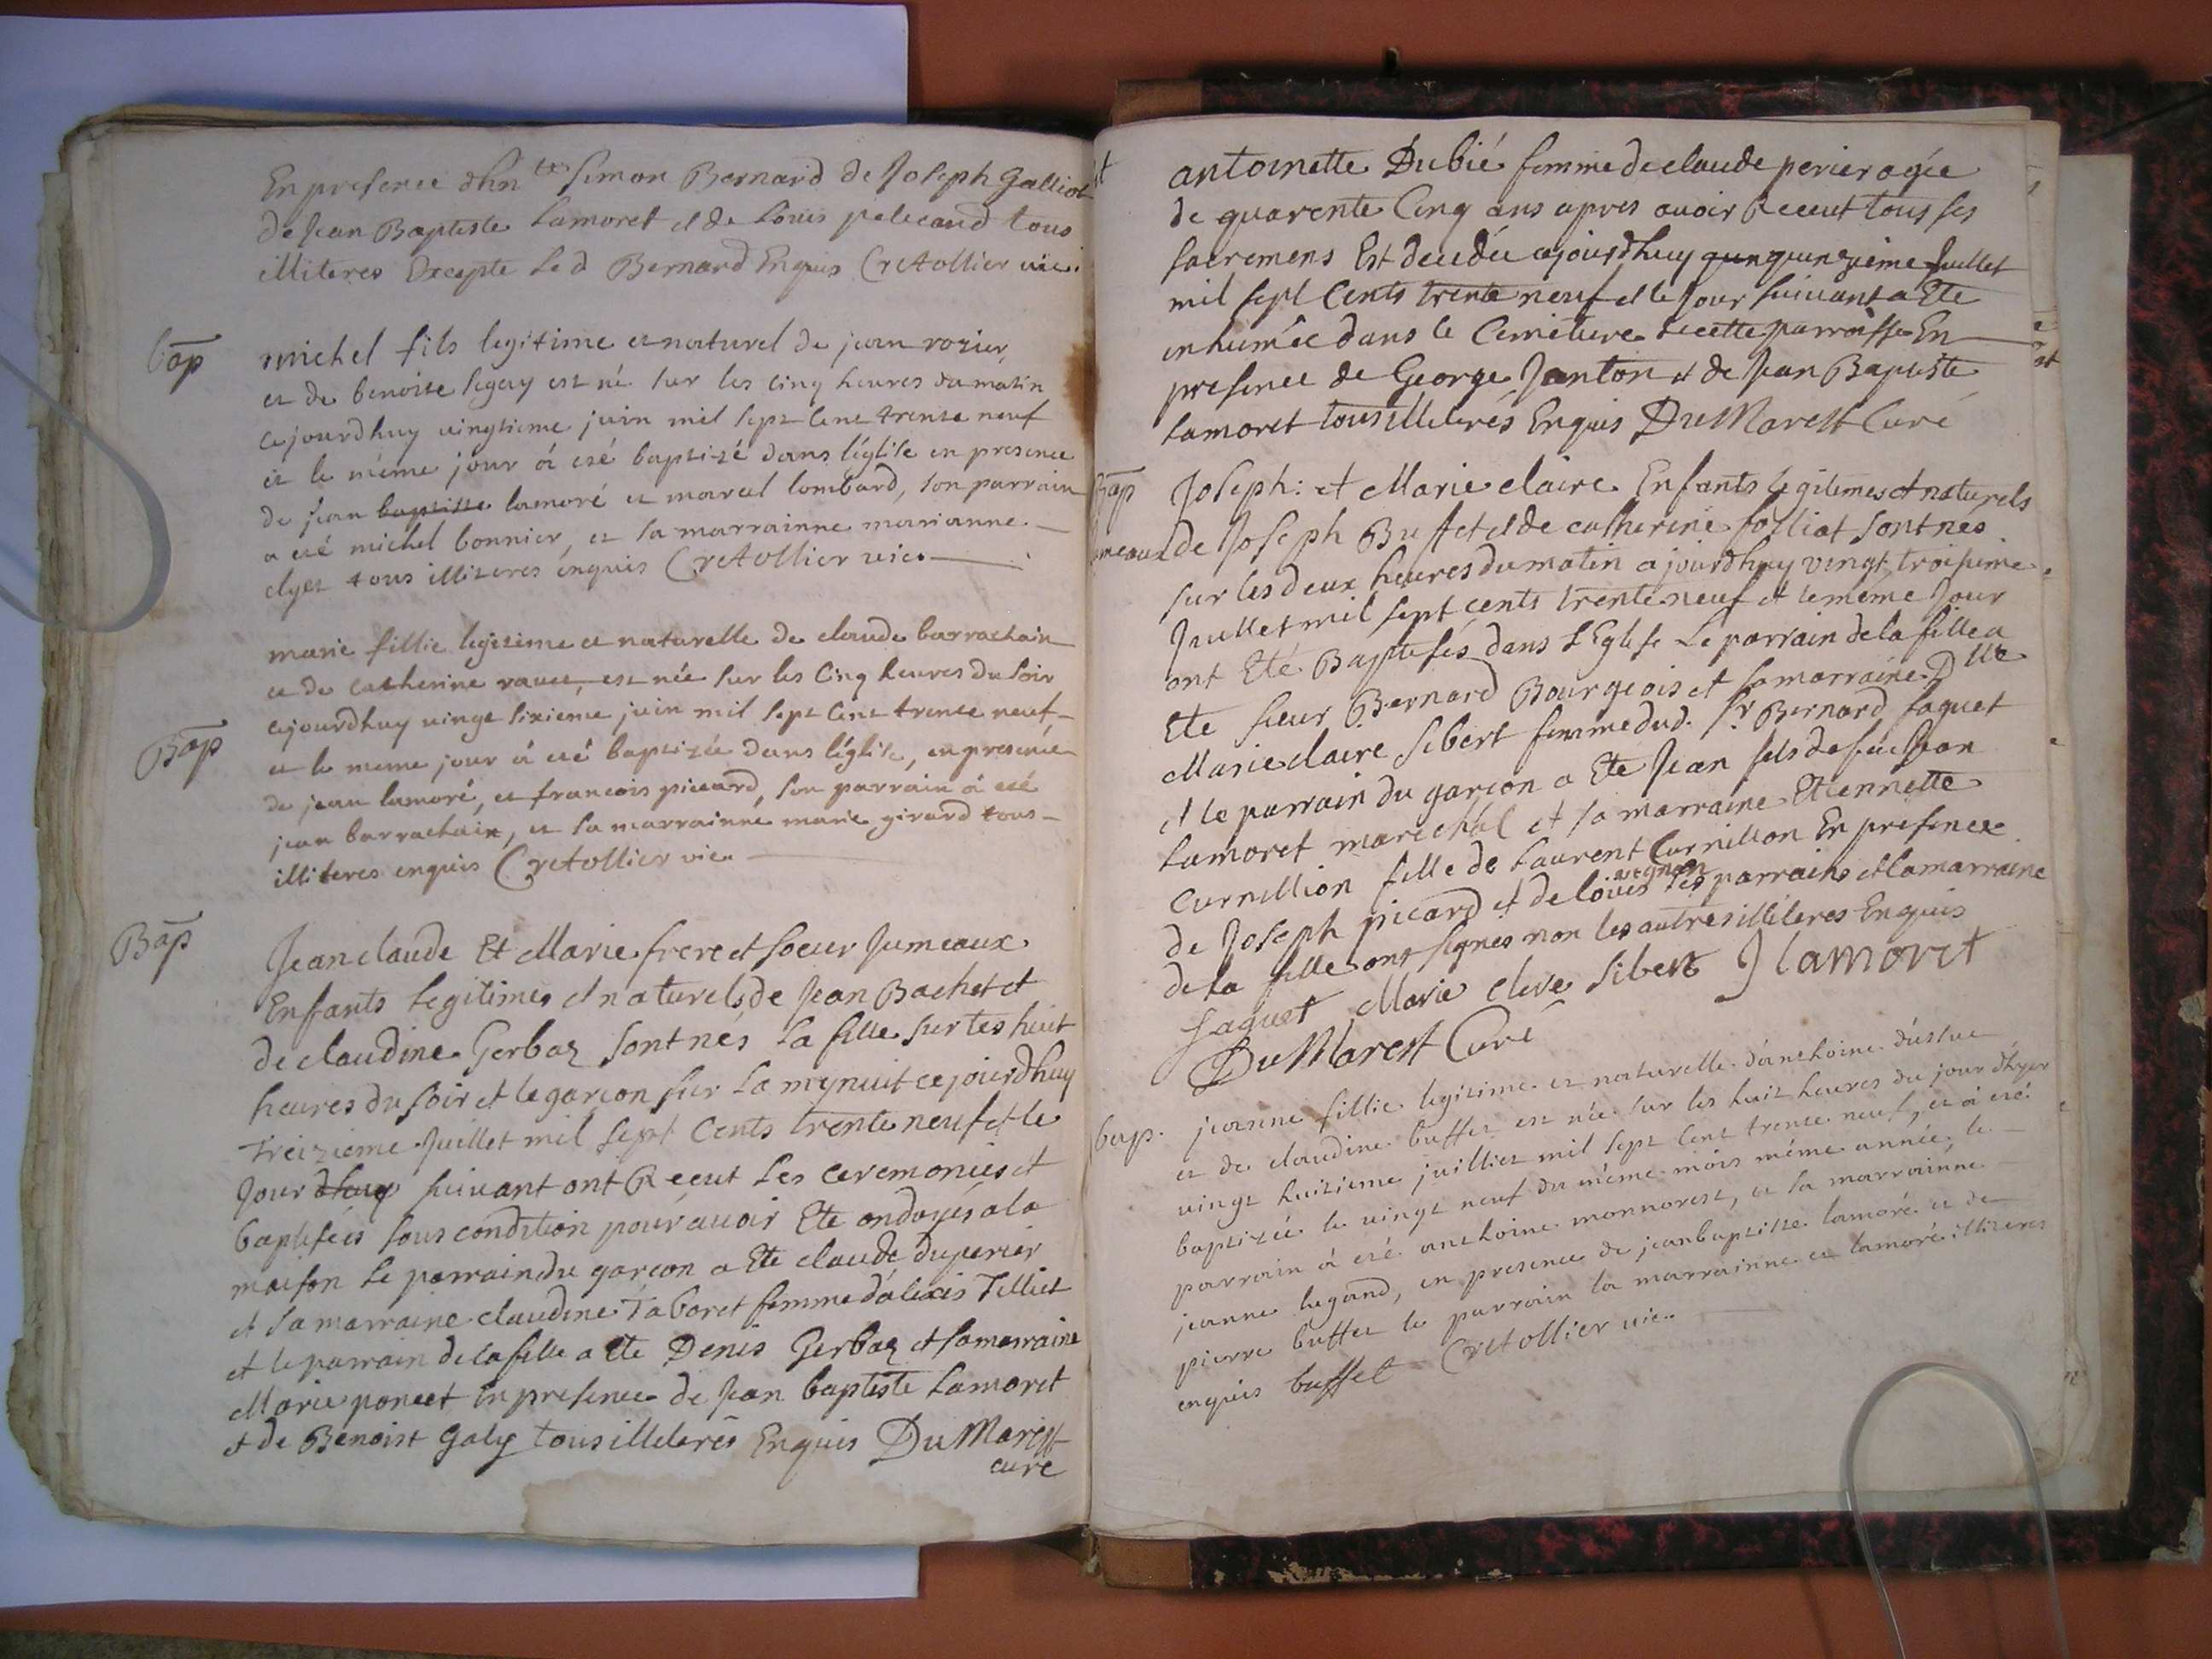 En presence dhn te Simon Bernard de Joseph Galliot
de Jean Baptiste Lamoret et de Louis pelicand tous
illiteres Excepte Le d Bernard Enquis Cretollier vic.
bap
michel fils legitime et naturel de jean rozier,
et de benoite seguy est né sur les cinq heures du matin
cejourdhuy vingtieme juin mil sept cent trente neuf
et le méme jour á eté baptizé dans léglise en presence
de jean baptiste lamoré et marcel lombard, son parrain
a eté michel bonnier, et sa marrainne marianne
elyet tous illiteres enquis Cretollier vic.
marie fillie legitime et naturelle de claude barrachain
et de catherine ravet, est née sur les Cinq heures du soir
cejourdhuy vingt sixieme juin mil sept cent trente neuf
Bap
et le meme jour á eté baptizée dans léglise, en presence
de jean lamoré, et francois picard, son parrain á eté
jean barrachain, et sa marrainne marie girard tous
illiteres enquis Cretollier vic.
Bap
Jean claude Et Marie frere et soeur Jumeaux
Enfants Legitimes et naturels de Jean Bachet et
de claudine Gerbaz sont nes La fille sur les huit
heures du soir et le garcon sur La mynuit cejourdhuy
treizieme Juillet mil sept Cents trente neuf et le
Jour dhuy suivant ont Receut Les ceremonies et
baptisées sous condition pour avoir Ete ondoyés a la
maison Le parrain du garcon a Ete claude duperier
et sa marraine claudine Taboret femme d'alexis Tilliet
et le parrain de la fille a Ete Denis Gerbaz et sa marraine
Marie poncet En presence de Jean baptiste Lamoret
et de Benoist Galy tous illiterés Enquis DuMarest
curé
antoinette Dubié femme de claude perier agée
de quarente Cinq ans apres avoir Receut tous ses
sacremens Est decedée ajourdhuy qun quinzieme Juillet
mil sept Cents trente neuf et le Jour suivant a Ete
inhumée dans le Cimetiere de cette parroisse En
presence de George Janton et de Jean Baptiste
Lamoret tous illiterés Enquis DuMarest Curé
Bap
Joseph: et Marie claire Enfants Legitimes et naturels
de Joseph Buffet et de catherine folliat sont nés
sur les deux heures du matin ajourdhuy vingt troisieme
Juillet mil sept cents trente neuf et le méme Jour
ont Eté Baptisés dans L'Eglise Le parrain de la fille a
Ete sieur Bernard Bourgeois et sa marraine Dlle
Marie claire Sibert femme dud. sr Bernard Jaquet
et le parrain du garcon a Ete Jean fils de feu Jean
Lamoret marechal et sa marraine Etiennette
Curnillion fille de Laurent Curnillion En presence
de Joseph picard et de louis les parrains et la marraine
de la fille ont signes non les autres illiteres Enquis
Jaquet Marie clere Sibert J lamoret
DuMarest Curé
bap.
jeanne fillie legitime et naturelle d'anthoine
et de claudine buffet est née sur les huit heures du jour dhyer
vingt huitieme juilliet mil sept cent trente neuf, et á eté
baptizée le vingt neuf du méme mois méme année, le
parrain á eté anthoine monnorest, et la marrainne
jeanne legand, en presence de jeanbaptiste lamoré et de
pierre buffet le parrain la marrainne et lamoré illiteres
enquis buffet Cretollier vic.